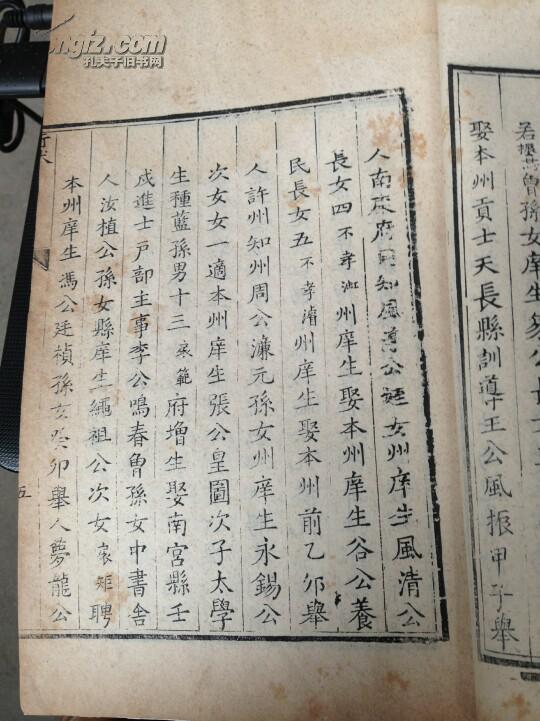 若
曾孫女庠生
公長
娶本州貢士天長縣訓導王公風振甲子舉
人南
府同知風
公
女州庠生風清公
長女四不孝
州庠生娶本州庠生谷公養
民長女五不孝濬州庠生娶本州前乙卯舉
人許州知州周公濂元孫女州庠生永錫公
次女女一適本州庠生張公皇圖次子太學
生種藍孫男十三家範府增生娶南宮縣壬
戌進士戶部主事李公鳴春曾孫女中書舍
人汝植公孫女縣庠生繩祖公次女家矩聘
本州庠生馮公廷禎孫女癸卯舉人夢龍公
行
五
ongfz.com
孔夫子旧书网